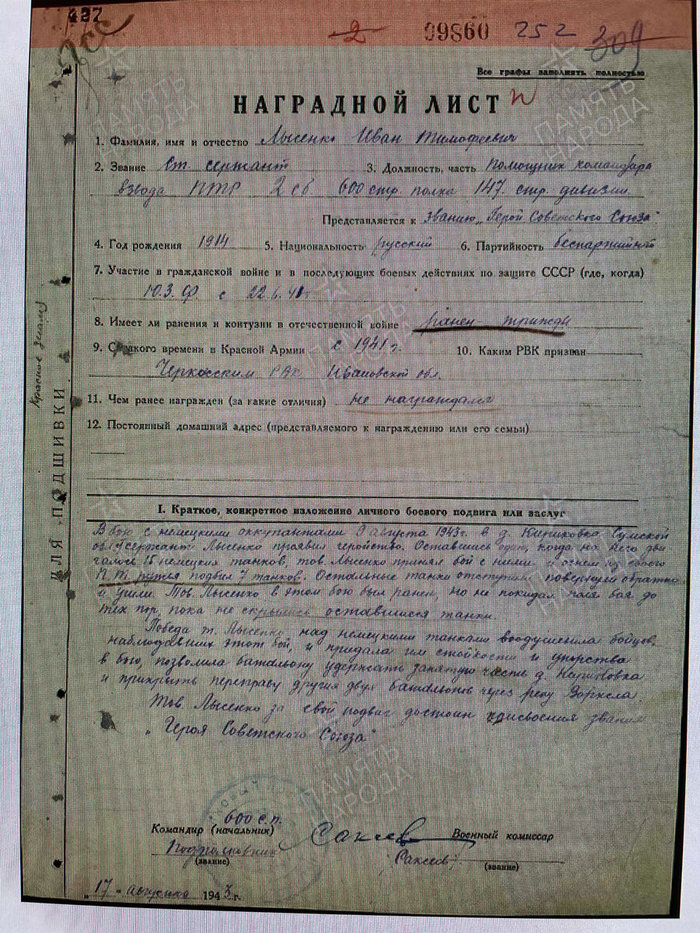 427
2 09860 252 309
Все графы заполнять полностью
НАГРАДНОЙ ЛИСТ
1. Фамилия, имя и отчество Лысенко Иван Тимофеевич
2. Звание Ст. сержант 3. Должность, часть Помощник командира
взвода ПТР 2 сб 600 стр. полка 147. стр. дивизии
Представляется к званию „Герой Советского Союза"
4. Год рождения 1914 5. Национальность русский 6. Партийность беспартийный
7. Участие в гражданской войне и в последующих боевых действиях по защите СССР (где, когда)
Ю.З. Ф. с 22.6.41г
8. Имеет ли ранения и контузии в отечественной войне ранен трижды
9. С какого времени в Красной Армии с 1941 г. 10. Каким РВК призван
РВК Ивановской обл.
11. Чем ранее награжден (за какие отличия) не награждался
12. Постоянный домашний адрес (представляемого к награждению или его семьи)
ДЛЯ ПОДШИВКИ
I. Краткое, конкретное изложение личного боевого подвига или заслуг
В бою с немецкими оккупантами 9 августа 1943 г. в д. Кириковка Сумской
обл. сержант Лысенко проявил геройство. Оставшись один, когда на него дви
галось 15 немецких танков, тов. Лысенко принял бой с ними и огнем из своего
П.Т. ружья подбил 7 танков. Остальные танки отступили повернули обратно
и ушли. Тов. Лысенко в этом бою был ранен, но не покидал поля боя до
тех пор, пока не скрылись оставшиеся танки.
Победа т. Лысенко, над немецкими танками воодушевила бойцов,
наблюдавших этот бой, и придала им стойкости и упорства
в бою, позволила батальону удержать занятую часть д. Кириковка
и прикрыть переправу других двух батальонов через реку Ворскла.
Тов Лысенко за свой подвиг достоин присвоения звания
„Героя Советского Союза"
600 с.п.
Командир (начальник) Военный комиссар
Подполковник Сакеев
(звание) (звание)
„17" августа 1943 г.
ПАМЯТЬ НАРОДА